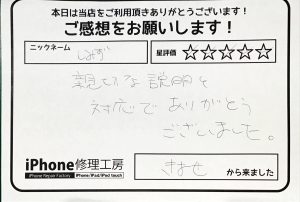 本日は当店をご利用頂きありがとうございます！
ご感想をお願いします！
ニックネーム
しみず
星評価 ☆☆☆☆☆
親切な説明と
対応でありがとう
ございました。
iPhone修理工房
iPhone Repair Factory
iPhone/iPad/iPod touch
きよせ から来ました